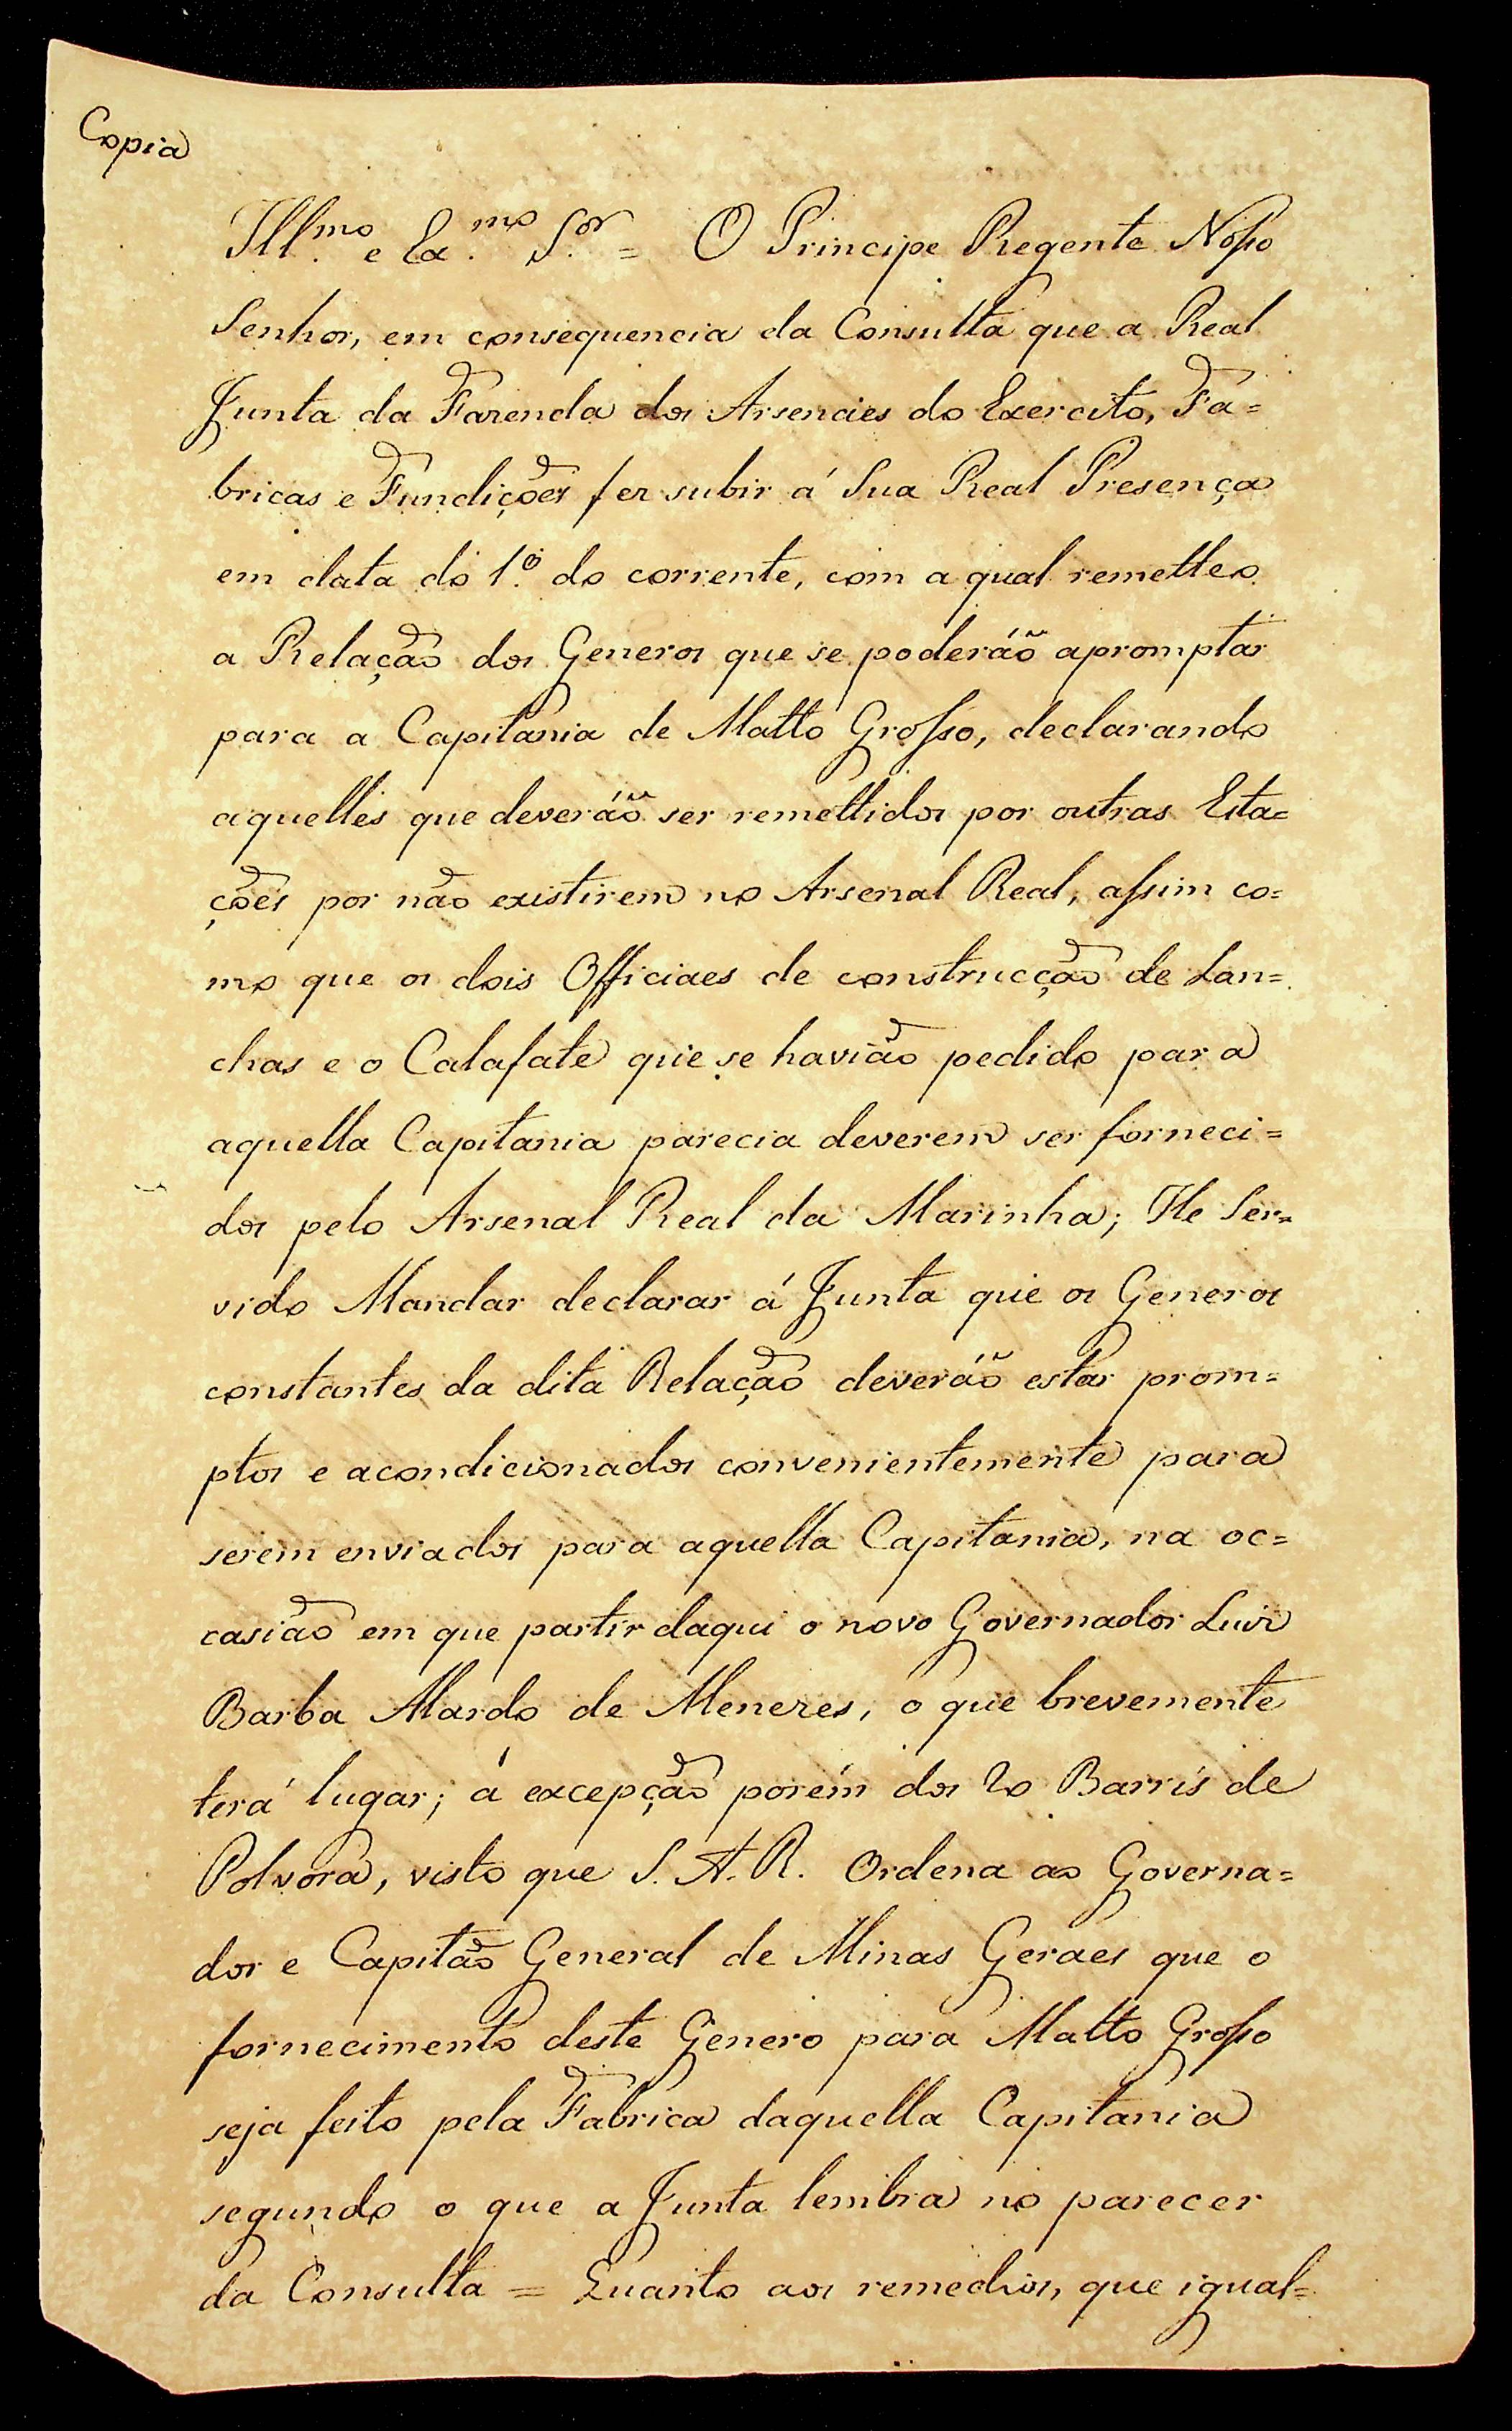 Copia
Ill.mo e Ex.mo S.or = O Principe Regente Nosso
Senhor, em consequencia da Consulta que a Real
Junta da Fazenda dos Arsenaes do Exercito, Fa=
bricas e Fundições fez subir á Sua Real Presença
em data do 1.o do corrente, com a qual remetteo
a Relação dos Generos que se poderáõ apromptar
para a Capitania de Matto Grosso, declarando
aquelles que deveráõ ser remettidos por outras Esta=
ções por não existirem no Arsenal Real, assim co=
mo que os dois Officiaes de construcção de Lan=
chas e o Calafate que se havião pedido para
aquella Capitania parecia deverem ser forneci=
dos pelo Arsenal Real da Marinha; He Ser=
vido Mandar declarar á Junta que os Generos
constantes da dita Relação deveráõ estar prom=
ptos e acondicionados convenientemente para
serem enviados para aquella Capitania, na oc=
casião em que partir daqui o novo Governador Luiz
Barba Alardo de Menezes, o que brevemente
terá lugar; á excepção porém dos 20 Barris de
Polvora, visto que S. A. R. Ordena ao Governa=
dor e Capitão General de Minas Geraes que o
fornecimento deste Genero para Matto Grosso
seja feito pela Fabrica daquella Capitania
segundo o que a Junta lembra no parecer
da Consulta = Quanto aos remedios, que igual=